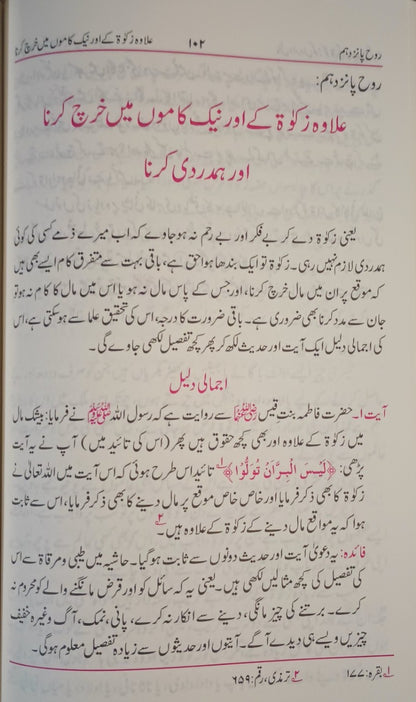 روح پانزدہم
۱۰۲
علاوہ زکوٰۃ کے اور نیک کاموں میں خرچ کرنا
روح پانزدہم:
علاوہ زکوٰۃ کے اور نیک کاموں میں خرچ کرنا
اور ہمدردی کرنا
یعنی زکوٰۃ دے کر بے فکر اور بے رحم نہ ہو جاوے کہ اب میرے ذمے کسی کی کوئی
ہمدردی لازم نہیں رہی۔ زکوٰۃ تو ایک بندھا ہوا حق ہے، باقی بہت سے متفرق کام ایسے بھی ہیں
کہ موقع پر ان میں مال خرچ کرنا، اور جس کے پاس مال نہ ہو یا اس میں مال کا کام نہ ہو تو
جان سے مدد کرنا بھی ضروری ہے۔ باقی ضرورت کا درجہ، اس کی تحقیق علما سے ہو سکتی ہے، اس
کی اجمالی دلیل ایک آیت اور حدیث لکھ کر پھر کچھ تفصیل لکھی جاوے گی۔
اجمالی دلیل
آیت ۱۔ حضرت فاطمہ بنت قیس رضی اللہ عنہا سے روایت ہے کہ رسول اللہ ﷺ نے فرمایا: بیشک مال
میں زکوٰۃ کے علاوہ اور بھی کچھ حقوق ہیں پھر (اس کی تائید میں) آپ نے یہ آیت
پڑھی: ﴿لَيْسَ الْبِرَّ اَنْ تُوَلُّوْا﴾۱ تائید اس طرح ہوئی کہ اس آیت میں اللہ تعالیٰ نے
زکوٰۃ کا بھی ذکر فرمایا اور خاص خاص موقع پر مال دینے کا بھی ذکر فرمایا، اس سے ثابت
ہوا کہ یہ مواقع مال دینے کے زکوٰۃ کے علاوہ ہیں۔۲
فائدہ: یہ دعویٰ آیت اور حدیث دونوں سے ثابت ہو گیا۔ حاشیہ میں طیبی و مرقاۃ سے اس
کی تفصیل کی کچھ مثالیں لکھی ہیں۔ یعنی یہ کہ سائل کو اور قرض مانگنے والے کو محروم نہ
کرے۔ برتنے کی چیز مانگی، دینے سے انکار نہ کرے، پانی، نمک، آگ وغیرہ خفیف
چیزیں ویسے ہی دیدے آگے۔ آیتوں اور حدیثوں سے زیادہ تفصیل معلوم ہوگی۔
۱ بقرہ: ۱۷۷
۲ ترمذی، رقم: ۶۵۹